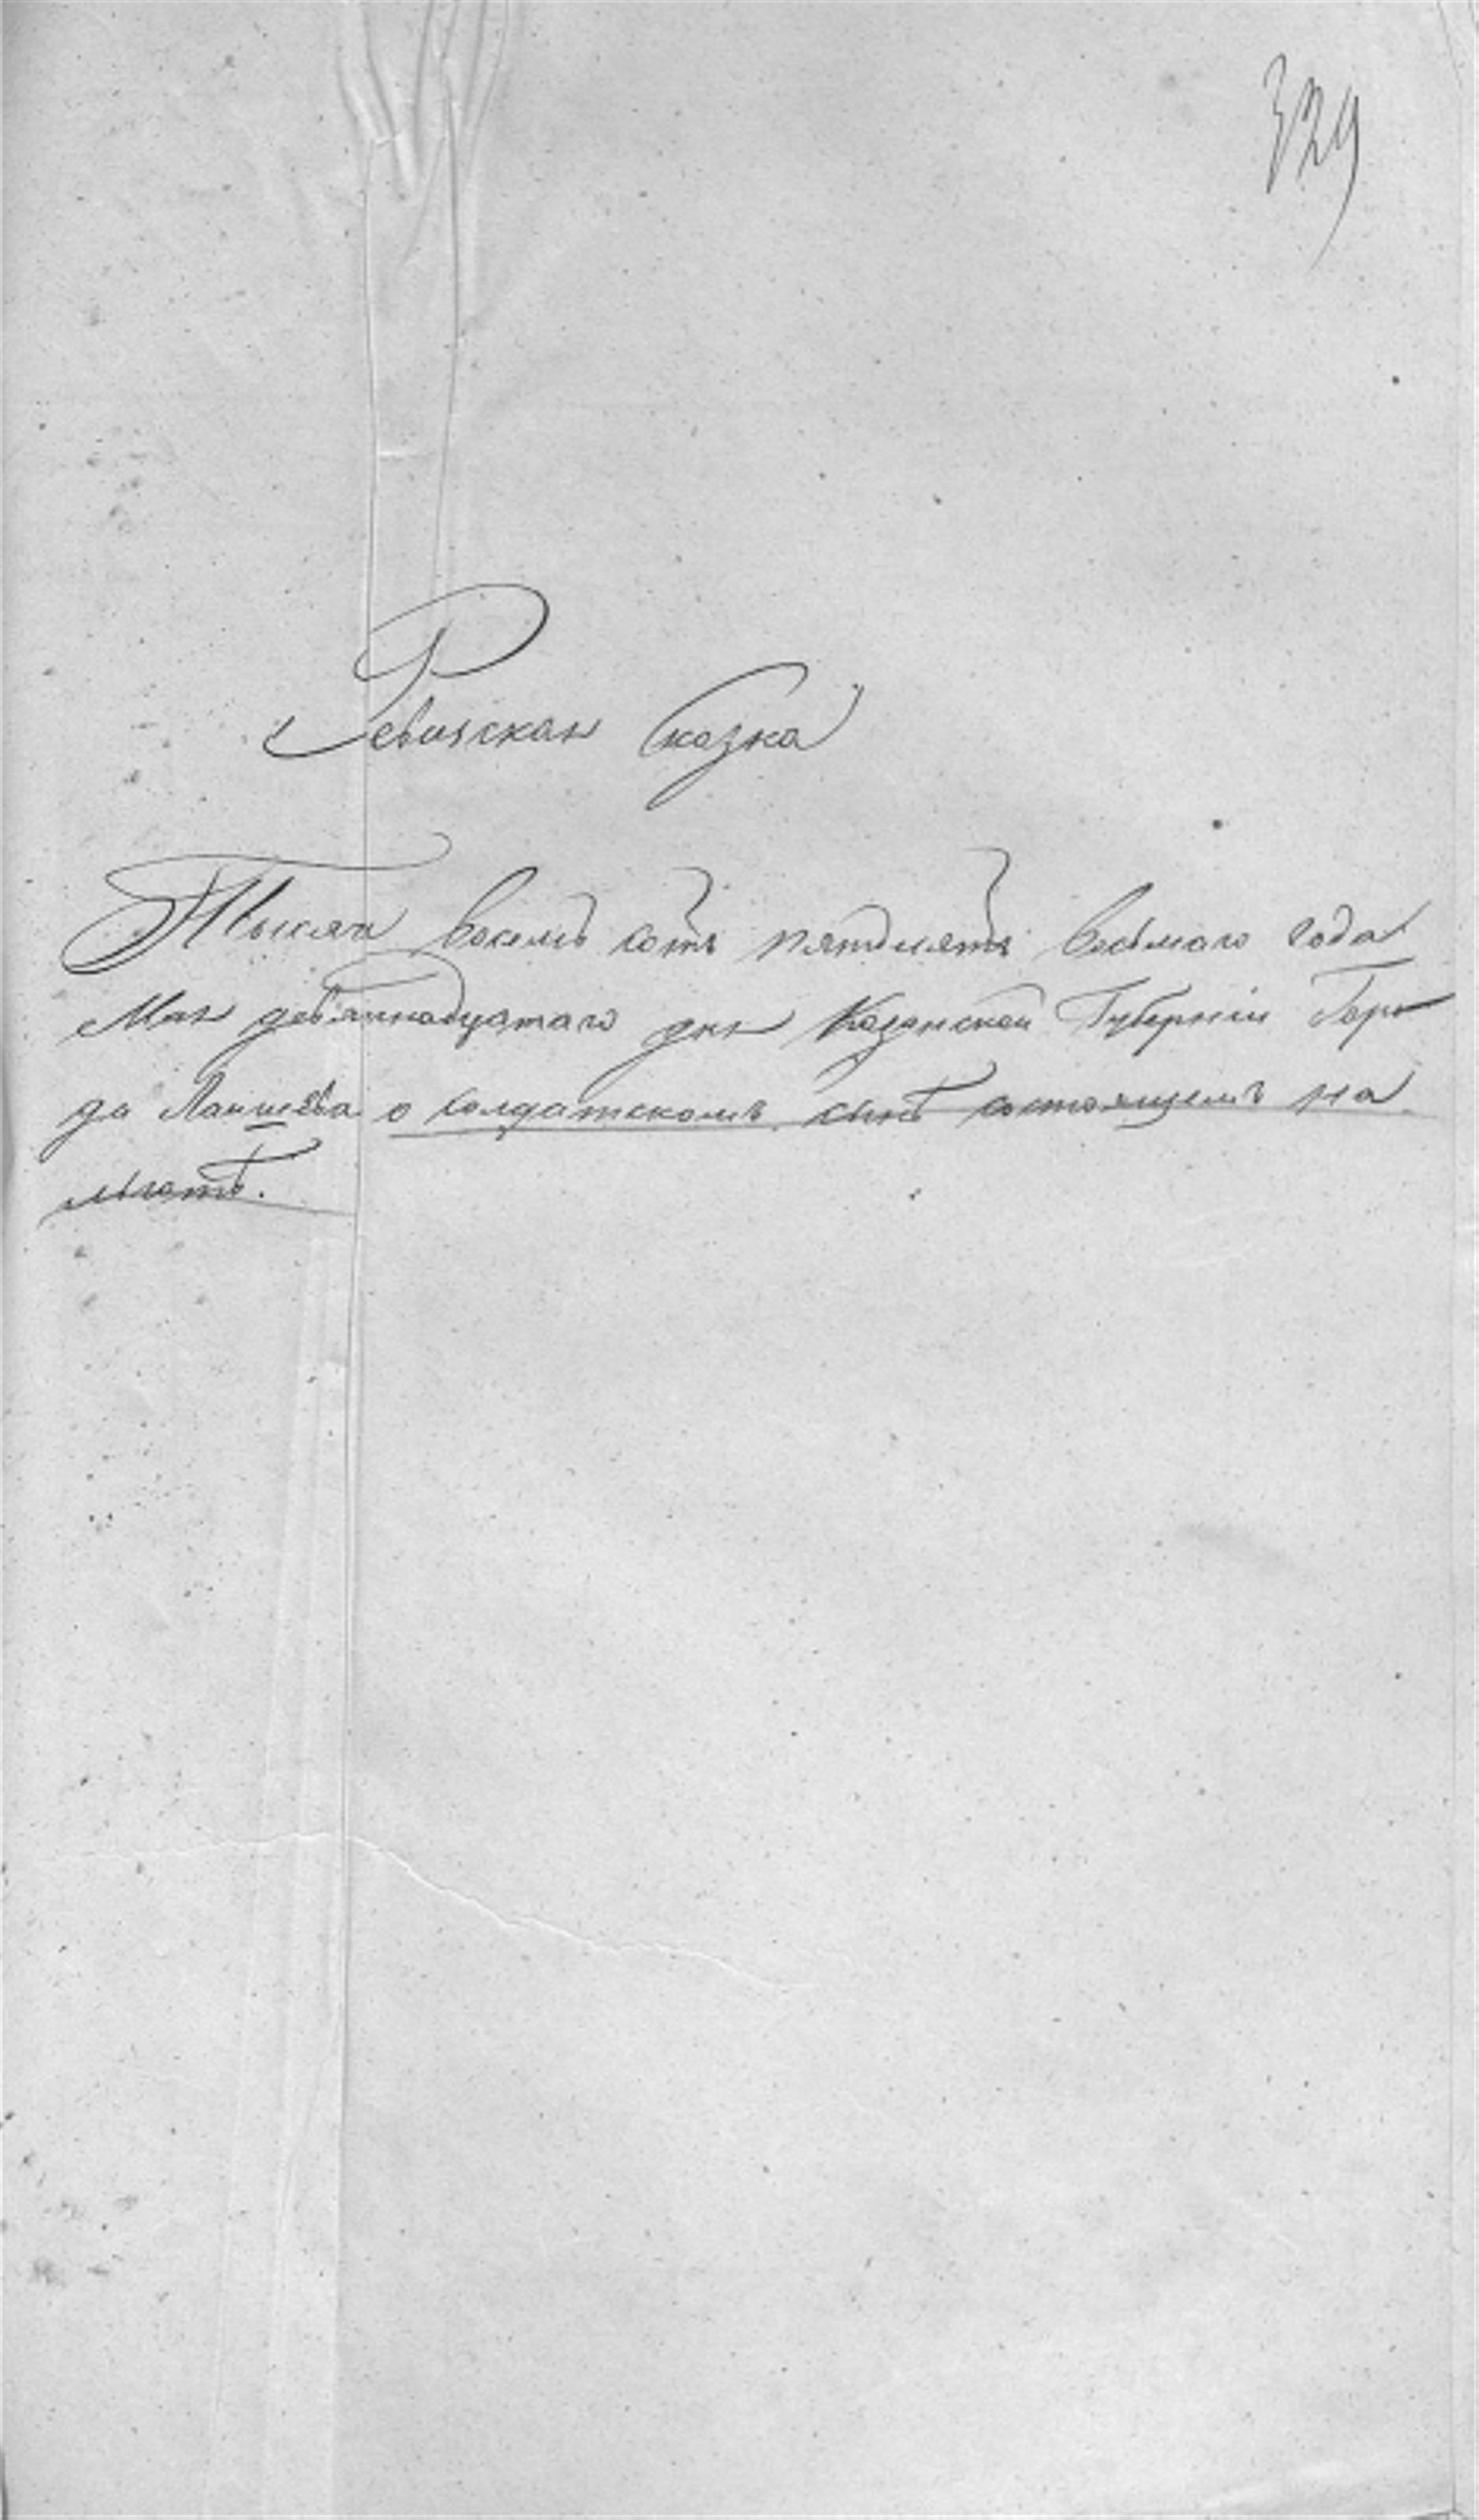 329
Ревизская Сказка
Тысяча восемь сотъ пятдесятъ восьмаго года
Мая девятнадцатаго дня Казанской Губерніи Горо
да Лаишева о солдатскомъ сынѣ состоящемъ на
льготѣ.